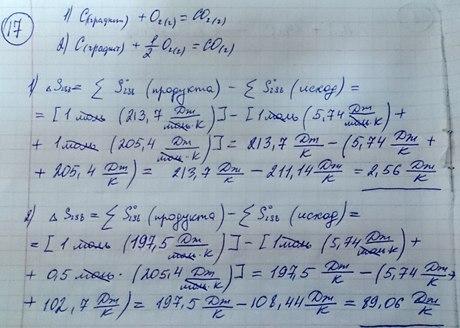 17
1) С(графит) + O₂(г) = CO₂(г)
2) С(графит) + 1/2 O₂(г) = CO(г)
1) ΔS₂₉₈ = Σ S°₂₉₈ (продукта) − Σ S°₂₉₈ (исход) =
= [1 моль (213,7 Дж/моль·К)] − [1 моль (5,74 Дж/моль·К) +
+ 1 моль (205,4 Дж/моль·К)] = 213,7 Дж/К − (5,74 Дж/К +
+ 205,4 Дж/К) = 213,7 Дж/К − 211,14 Дж/К = 2,56 Дж/К
2) ΔS₂₉₈ = Σ S°₂₉₈ (продукта) − Σ S°₂₉₈ (исход) =
= [1 моль (197,5 Дж/моль·К)] − [1 моль (5,74 Дж/моль·К) +
+ 0,5 моль · (205,4 Дж/моль·К)] = 197,5 Дж/К − (5,74 Дж/К +
+ 102,7 Дж/К) = 197,5 Дж/К − 108,44 Дж/К = 89,06 Дж/К